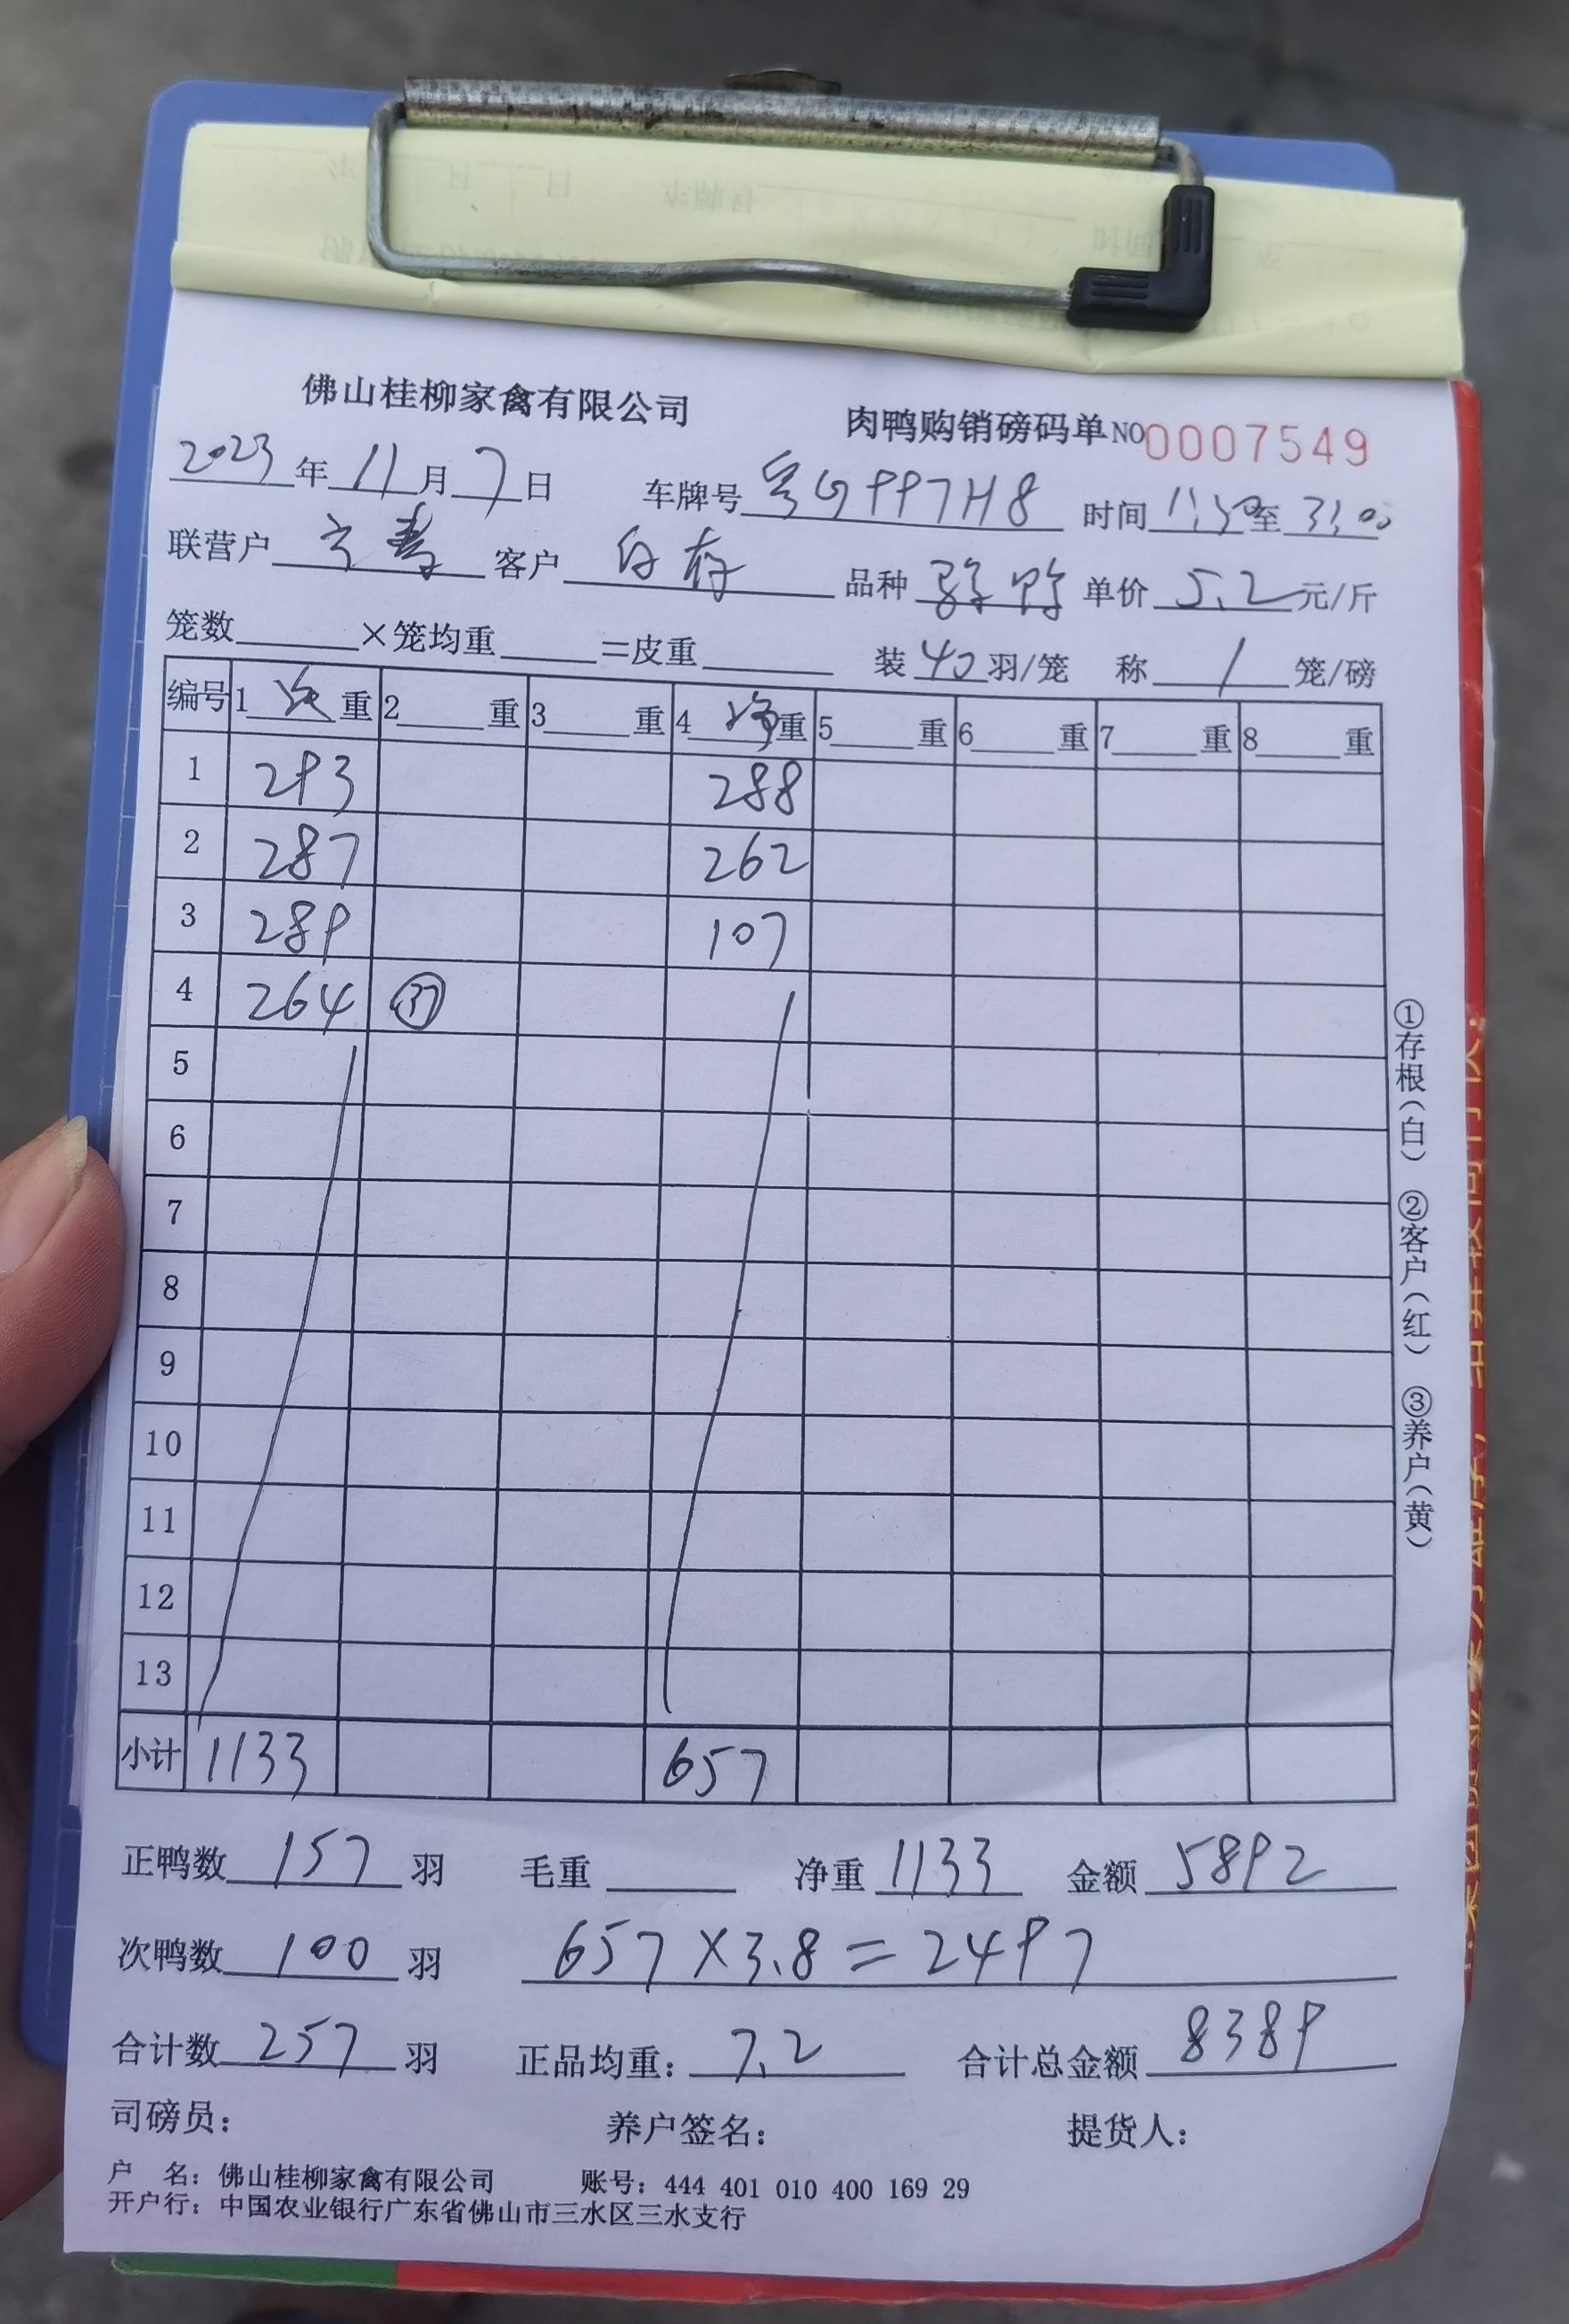 佛山桂柳家禽有限公司 肉鸭购销磅码单 NO 0007549
2023年11月7日 车牌号 粤G997H8 时间 1:30至3:00
联营户 客户 自存 品种 单价 5.2 元/斤
笼数 ×笼均重 =皮重 装 40 羽/笼 称 1 笼/磅
编号 1 重 2 重 3 重 4 净重 5 重 6 重 7 重 8 重
1 293 288
2 287 262
3 289 107
4 264 37
5
6
7
8
9
10
11
12
13
小计 1133 657
正鸭数 157 羽 毛重 净重 1133 金额 5892
次鸭数 100 羽 657×3.8=2497
合计数 257 羽 正品均重: 7.2 合计总金额 8389
司磅员: 养户签名: 提货人:
户 名: 佛山桂柳家禽有限公司 账号: 444 401 010 400 169 29
开户行: 中国农业银行广东省佛山市三水区三水支行
①存根(白) ②客户(红) ③养户(黄)